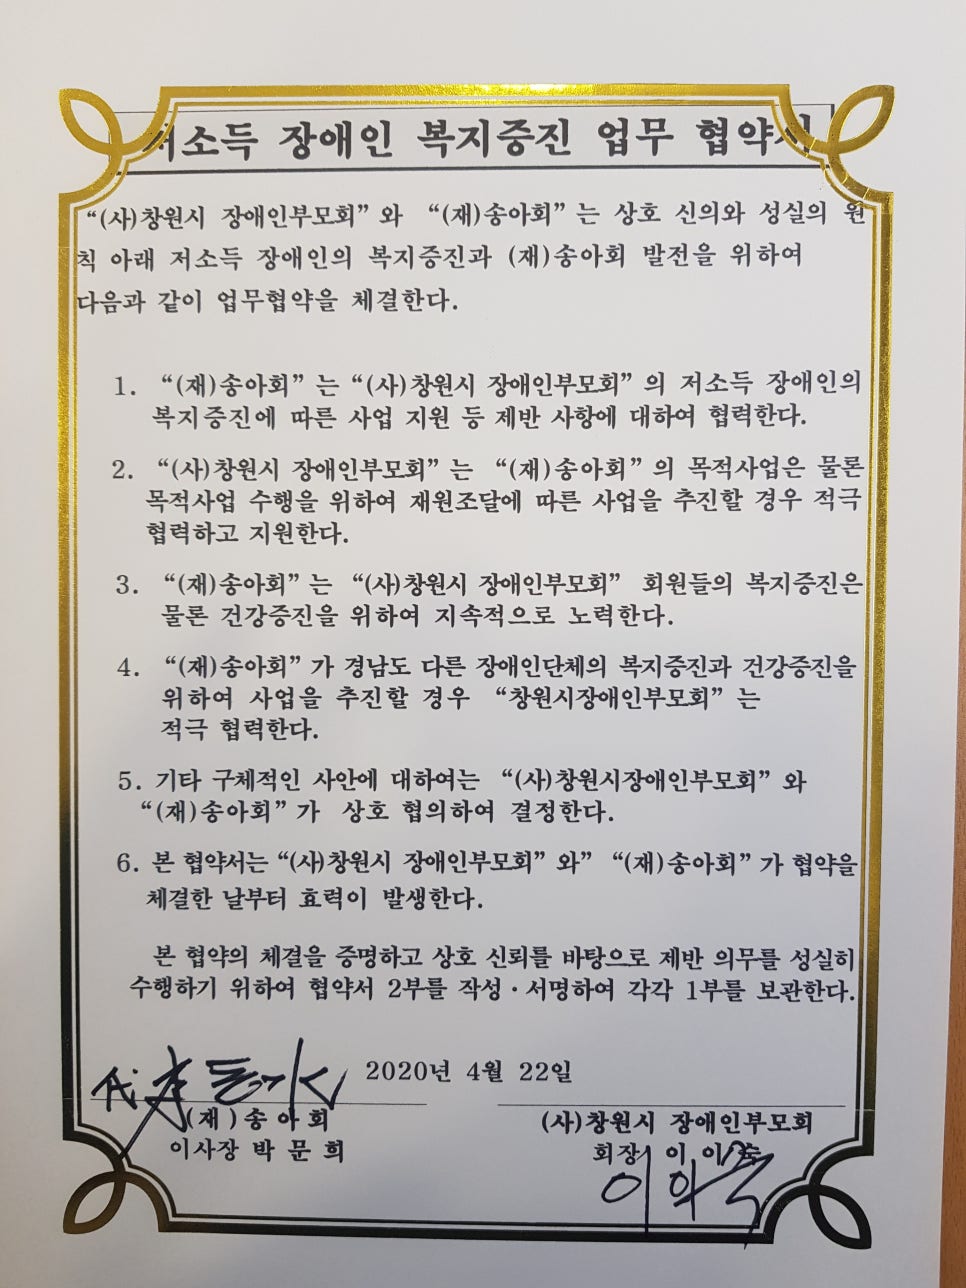 저소득 장애인 복지증진 업무 협약서
“(사)창원시 장애인부모회”와 “(재)송아회”는 상호 신의와 성실의 원
칙 아래 저소득 장애인의 복지증진과 (재)송아회 발전을 위하여
다음과 같이 업무협약을 체결한다.
1. “(재)송아회”는 “(사)창원시 장애인부모회”의 저소득 장애인의
복지증진에 따른 사업 지원 등 제반 사항에 대하여 협력한다.
2. “(사)창원시 장애인부모회”는 “(재)송아회”의 목적사업은 물론
목적사업 수행을 위하여 재원조달에 따른 사업을 추진할 경우 적극
협력하고 지원한다.
3. “(재)송아회”는 “(사)창원시 장애인부모회” 회원들의 복지증진은
물론 건강증진을 위하여 지속적으로 노력한다.
4. “(재)송아회”가 경남도 다른 장애인단체의 복지증진과 건강증진을
위하여 사업을 추진할 경우 “창원시장애인부모회”는
적극 협력한다.
5. 기타 구체적인 사안에 대하여는 “(사)창원시장애인부모회”와
“(재)송아회”가 상호 협의하여 결정한다.
6. 본 협약서는 “(사)창원시 장애인부모회”와” “(재)송아회”가 협약을
체결한 날부터 효력이 발생한다.
본 협약의 체결을 증명하고 상호 신뢰를 바탕으로 제반 의무를 성실히
수행하기 위하여 협약서 2부를 작성·서명하여 각각 1부를 보관한다.
2020년 4월 22일
(재)송아회
이사장 박문희
(사)창원시 장애인부모회
회장 이 이